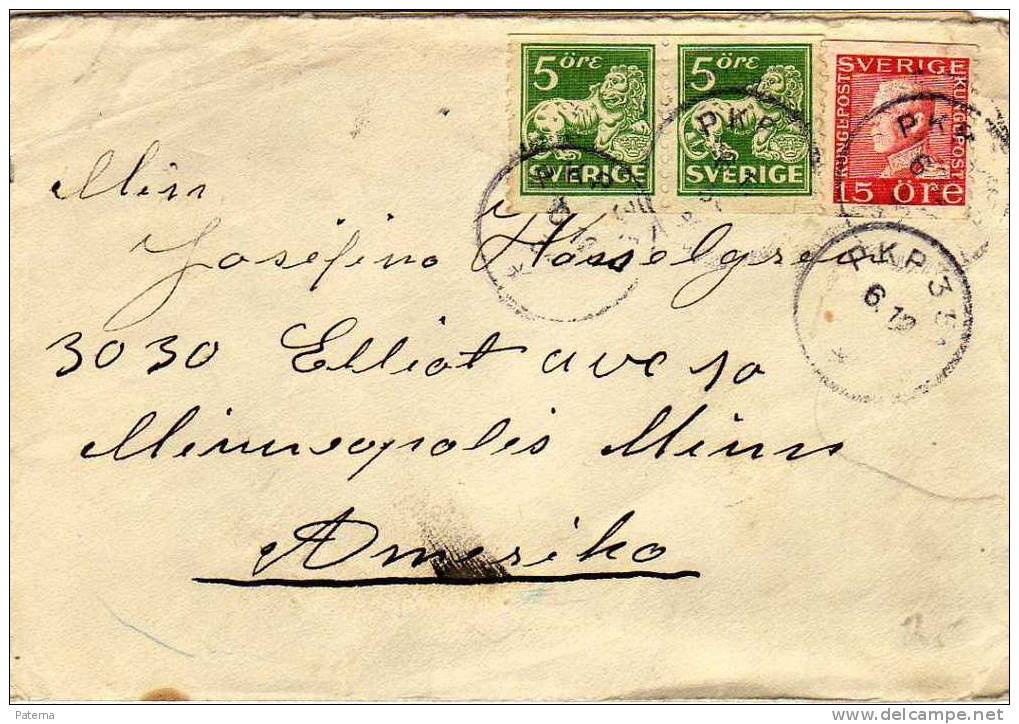 5 öre
SVERIGE
5 öre
SVERIGE
SVERIGE
KUNGL·POST
KUNGL·POST
15 öre
PKP
PK
6
PKP35
6.12
Miss
Josefina Hasselgren
3030 Elliot ave so
Minneapolis Minn
Amerika
Paterna
delcampe.net